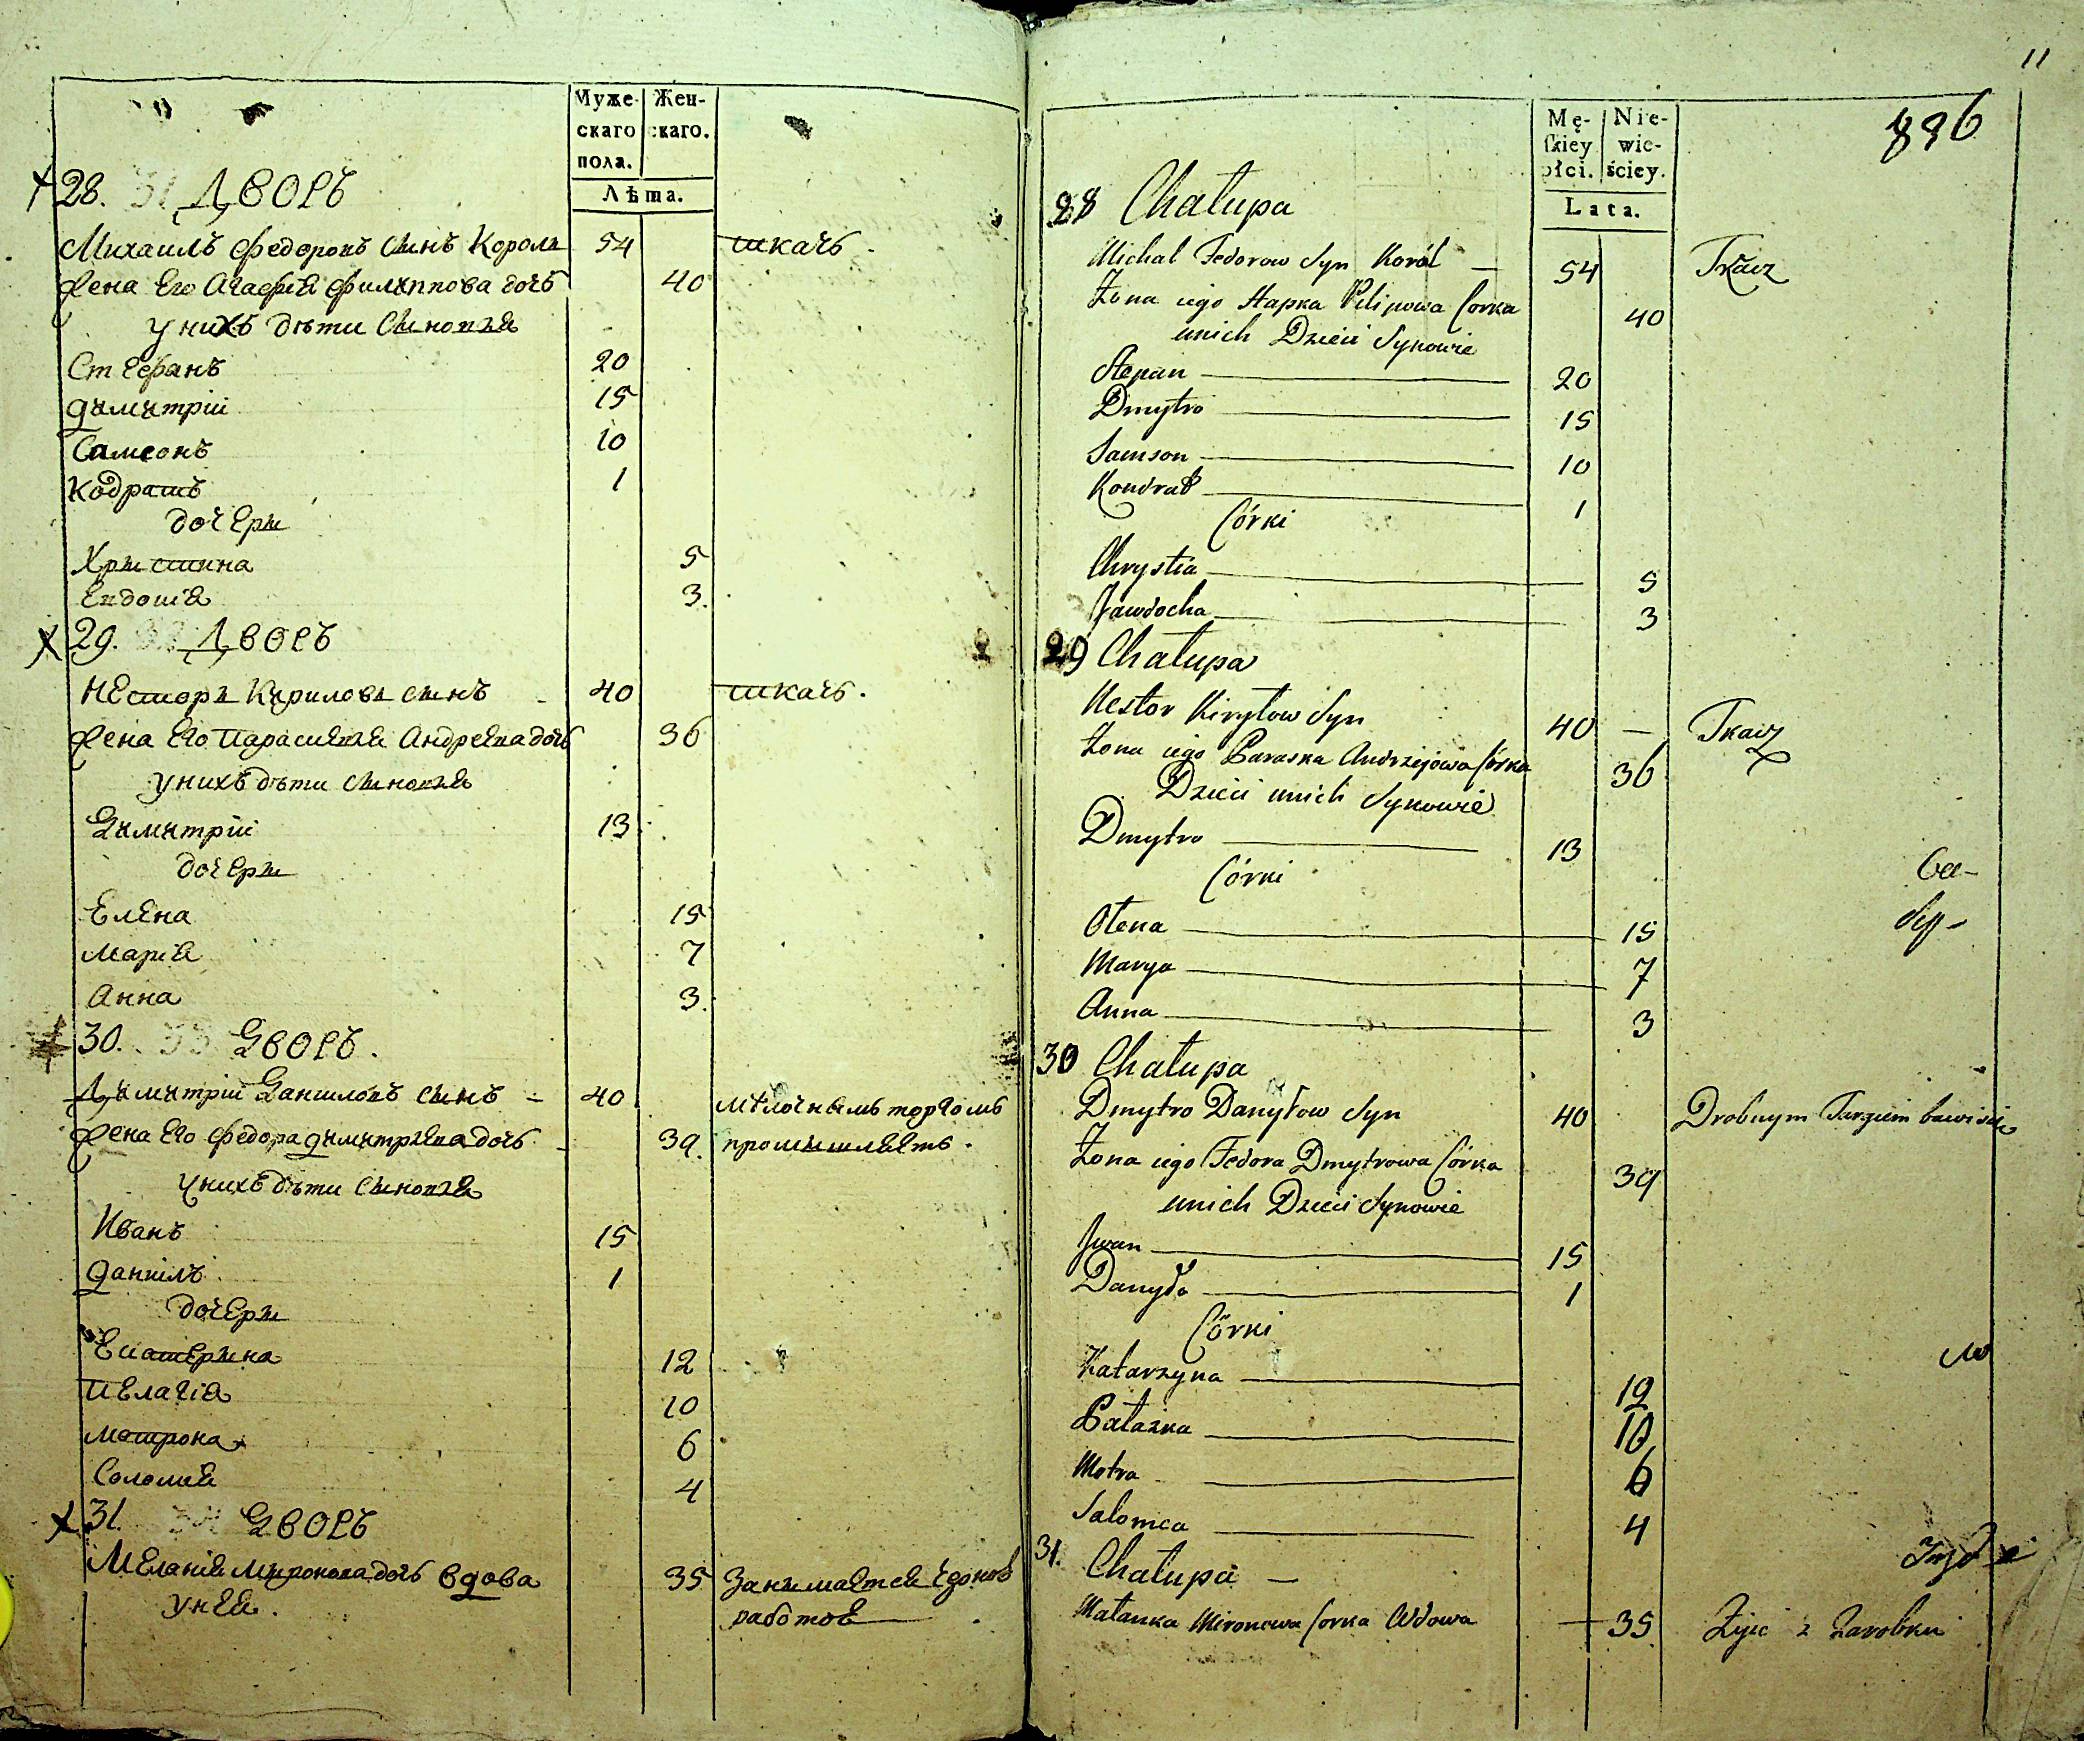 Муже-
скаго
пола.
Жен-
скаго.
Лѣта.
28. 31 Дворъ
Михаилъ Федоровъ сынъ Король 54 ткачь.
Жена его Агафия Филиппова дочь 40
у нихъ дѣти сыновья
Стефанъ 20
Димитрій 15
Самсонъ 10
Кодратъ 1
дочери
Христина 5
Евдокія 3.
29. 32 Дворъ
Несторъ Кириловъ сынъ 40 ткачь.
Жена его Параскевия Андреева дочь 36
у нихъ дѣти сыновья
Димитрій 13
дочери
Елена 15
Марія 7
Анна 3.
30. 33 Дворъ.
Димитрій Даниловъ сынъ 40 мѣлочнымъ торгомъ
Жена его Федора Димитриева дочь 39. промышляетъ.
у нихъ дѣти сыновья
Иванъ 15
Даніилъ 1
дочери
Екатерина 12
Пелагія 10
Матрона 6
Соломия 4
31. Дворъ
Меланія Миронова дочь вдова 35 Занимается
у нея. работою
11
896
Mę-
ſkiey
płci.
Nie-
wie-
ściey.
Lata.
28 Chałupa
Michał Fedorow Syn Koról — 54 Tkacz
Żona iego Hapka Pilipowa Corka 40
unich Dzieci Synowie
Stepan 20
Dmytro 15
Samson 10
Kondrat 1
Córki
Chrystia 5
Jawdocha 3
29 Chałupa
Nestor Kiryłow Syn 40 — Tkacz
Żona iego Paraska Andrzejowa Córka 36
Dzieci unich Synowie
Dmytro 13
Córki
Ołena 15
Marya 7
Anna 3
30 Chałupa
Dmytro Danyłow Syn 40 Drobnym Targiem bawi się
Żona iego Fedora Dmytrowa Córka 39
unich Dzieci Synowie
Jwan 15
Danyło 1
Córki
Katarzyna 12
Pałazka 10
Motra 6
Salomea 4
31. Chałupa —
Małanka Mironowa Corka Wdowa — 35 Żyie z Zarobku